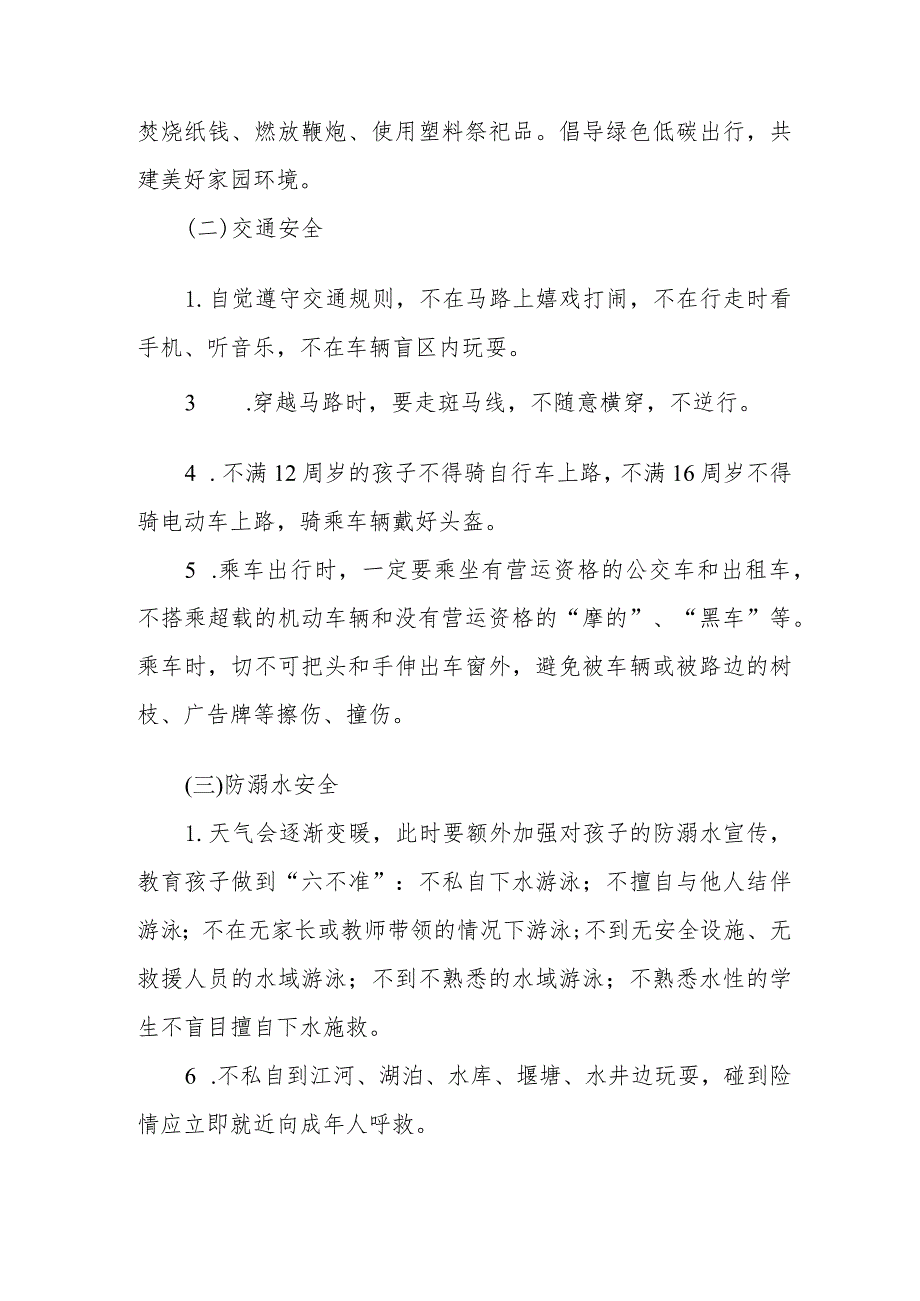 焚烧纸钱、燃放鞭炮、使用塑料祭祀品。倡导绿色低碳出行，共
建美好家园环境。
(二)交通安全
1.自觉遵守交通规则，不在马路上嬉戏打闹，不在行走时看
手机、听音乐，不在车辆盲区内玩耍。
3 .穿越马路时，要走斑马线，不随意横穿，不逆行。
4 .不满12周岁的孩子不得骑自行车上路，不满16周岁不得
骑电动车上路，骑乘车辆戴好头盔。
5 .乘车出行时，一定要乘坐有营运资格的公交车和出租车，
不搭乘超载的机动车辆和没有营运资格的“摩的”、“黑车”等。
乘车时，切不可把头和手伸出车窗外，避免被车辆或被路边的树
枝、广告牌等擦伤、撞伤。
(三)防溺水安全
1.天气会逐渐变暖，此时要额外加强对孩子的防溺水宣传，
教育孩子做到“六不准”：不私自下水游泳；不擅自与他人结伴
游泳；不在无家长或教师带领的情况下游泳；不到无安全设施、无
救援人员的水域游泳；不到不熟悉的水域游泳；不熟悉水性的学
生不盲目擅自下水施救。
6 .不私自到江河、湖泊、水库、堰塘、水井边玩耍，碰到险
情应立即就近向成年人呼救。